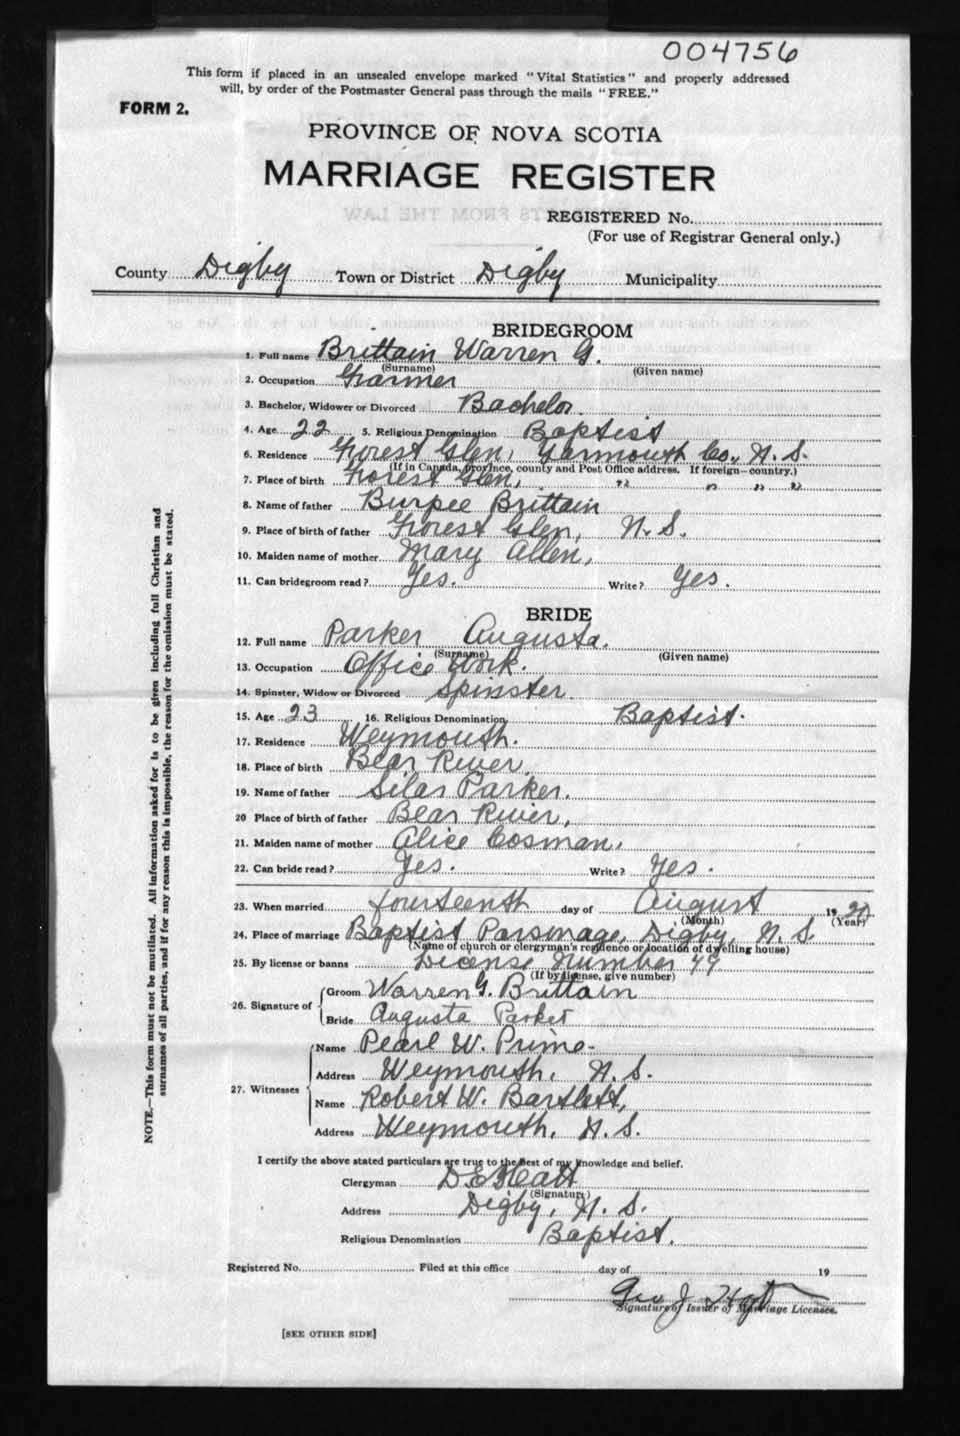 004756
This form if placed in an unsealed envelope marked "Vital Statistics" and properly addressed
will, by order of the Postmaster General pass through the mails "FREE."
FORM 2.
PROVINCE OF NOVA SCOTIA
MARRIAGE REGISTER
REGISTERED No.
(For use of Registrar General only.)
County Digby Town or District Digby Municipality
BRIDEGROOM
1. Full name Brittain Warren G.
(Surname) (Given name)
2. Occupation Farmer
3. Bachelor, Widower or Divorced Bachelor.
4. Age 22 5. Religious Denomination Baptist
6. Residence Forest Glen, Yarmouth Co., N.S.
(If in Canada, province, county and Post Office address. If foreign—country.)
7. Place of birth Forest Glen, " " " "
8. Name of father Burpee Brittain
9. Place of birth of father Forest Glen, N.S.
10. Maiden name of mother Mary Allen,
11. Can bridegroom read? Yes. Write? Yes.
BRIDE
12. Full name Parker Augusta.
(Surname) (Given name)
13. Occupation Office Work.
14. Spinster, Widow or Divorced Spinster
15. Age 23 16. Religious Denomination Baptist.
17. Residence Weymouth.
18. Place of birth Bear River,
19. Name of father Silas Parker.
20 Place of birth of father Bear River,
21. Maiden name of mother Alice Cosman,
22. Can bride read? Yes. Write? Yes.
23. When married fourteenth day of August 19
(Month) (Year)
24. Place of marriage Baptist Parsonage, Digby, N.S.
(Name of church or clergyman's residence or location of dwelling house)
25. By license or banns License Number 49
(If by license, give number)
26. Signature of Groom Warren G. Brittain
Bride Augusta Parker
27. Witnesses Name Pearl W. Prime
Address Weymouth, N.S.
Name Robert W. Bartlett,
Address Weymouth, N.S.
I certify the above stated particulars are true to the best of my knowledge and belief.
Clergyman
(Signature)
Address Digby, N.S.
Religious Denomination Baptist.
Registered No. Filed at this office day of 19
Geo J.
Signature of Issuer of Marriage Licenses.
[SEE OTHER SIDE]
NOTE.—This form must not be mutilated. All information asked for is to be given including full Christian and
surnames of all parties, and if for any reason this is impossible, the reason for the omission must be stated.